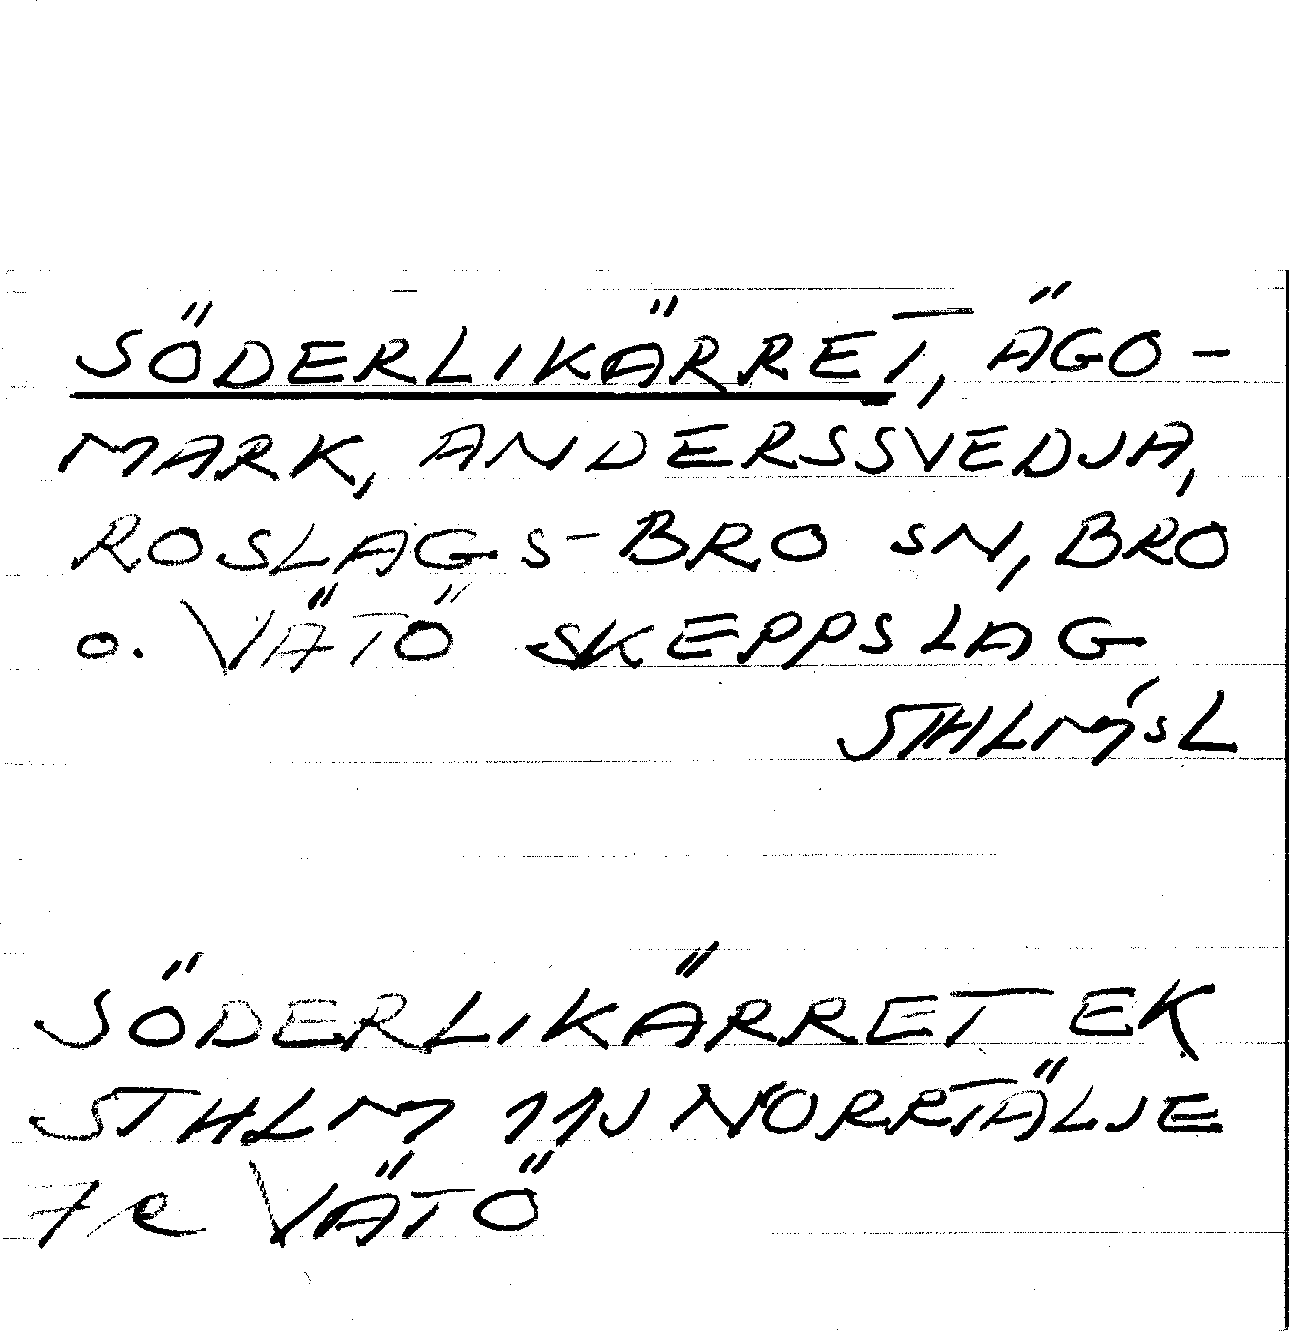 SÖDERLIKÄRRET, ÄGO-
MARK, ANDERSSVEDJA,
ROSLAGS-BRO SN, BRO
O. VÄTÖ SKEPPSLAG
STHLM'S L
SÖDERLIKÄRRET EK
STHLM 11J NORRTÄLJE
7 e VÄTÖ